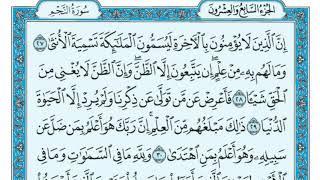 الجزء السابع والعشرون
سورة النجم
إِنَّ الَّذِينَ لَا يُؤْمِنُونَ بِالْآخِرَةِ لَيُسَمُّونَ الْمَلَائِكَةَ تَسْمِيَةَ الْأُنثَىٰ ٢٧
وَمَا لَهُم بِهِ مِنْ عِلْمٍ إِن يَتَّبِعُونَ إِلَّا الظَّنَّ وَإِنَّ الظَّنَّ لَا يُغْنِي مِنَ
الْحَقِّ شَيْئًا ٢٨ فَأَعْرِضْ عَن مَّن تَوَلَّىٰ عَن ذِكْرِنَا وَلَمْ يُرِدْ إِلَّا الْحَيَاةَ
الدُّنْيَا ٢٩ ذَٰلِكَ مَبْلَغُهُم مِّنَ الْعِلْمِ إِنَّ رَبَّكَ هُوَ أَعْلَمُ بِمَن ضَلَّ عَن
سَبِيلِهِ وَهُوَ أَعْلَمُ بِمَنِ اهْتَدَىٰ ٣٠ وَلِلَّهِ مَا فِي السَّمَاوَاتِ وَمَا فِي